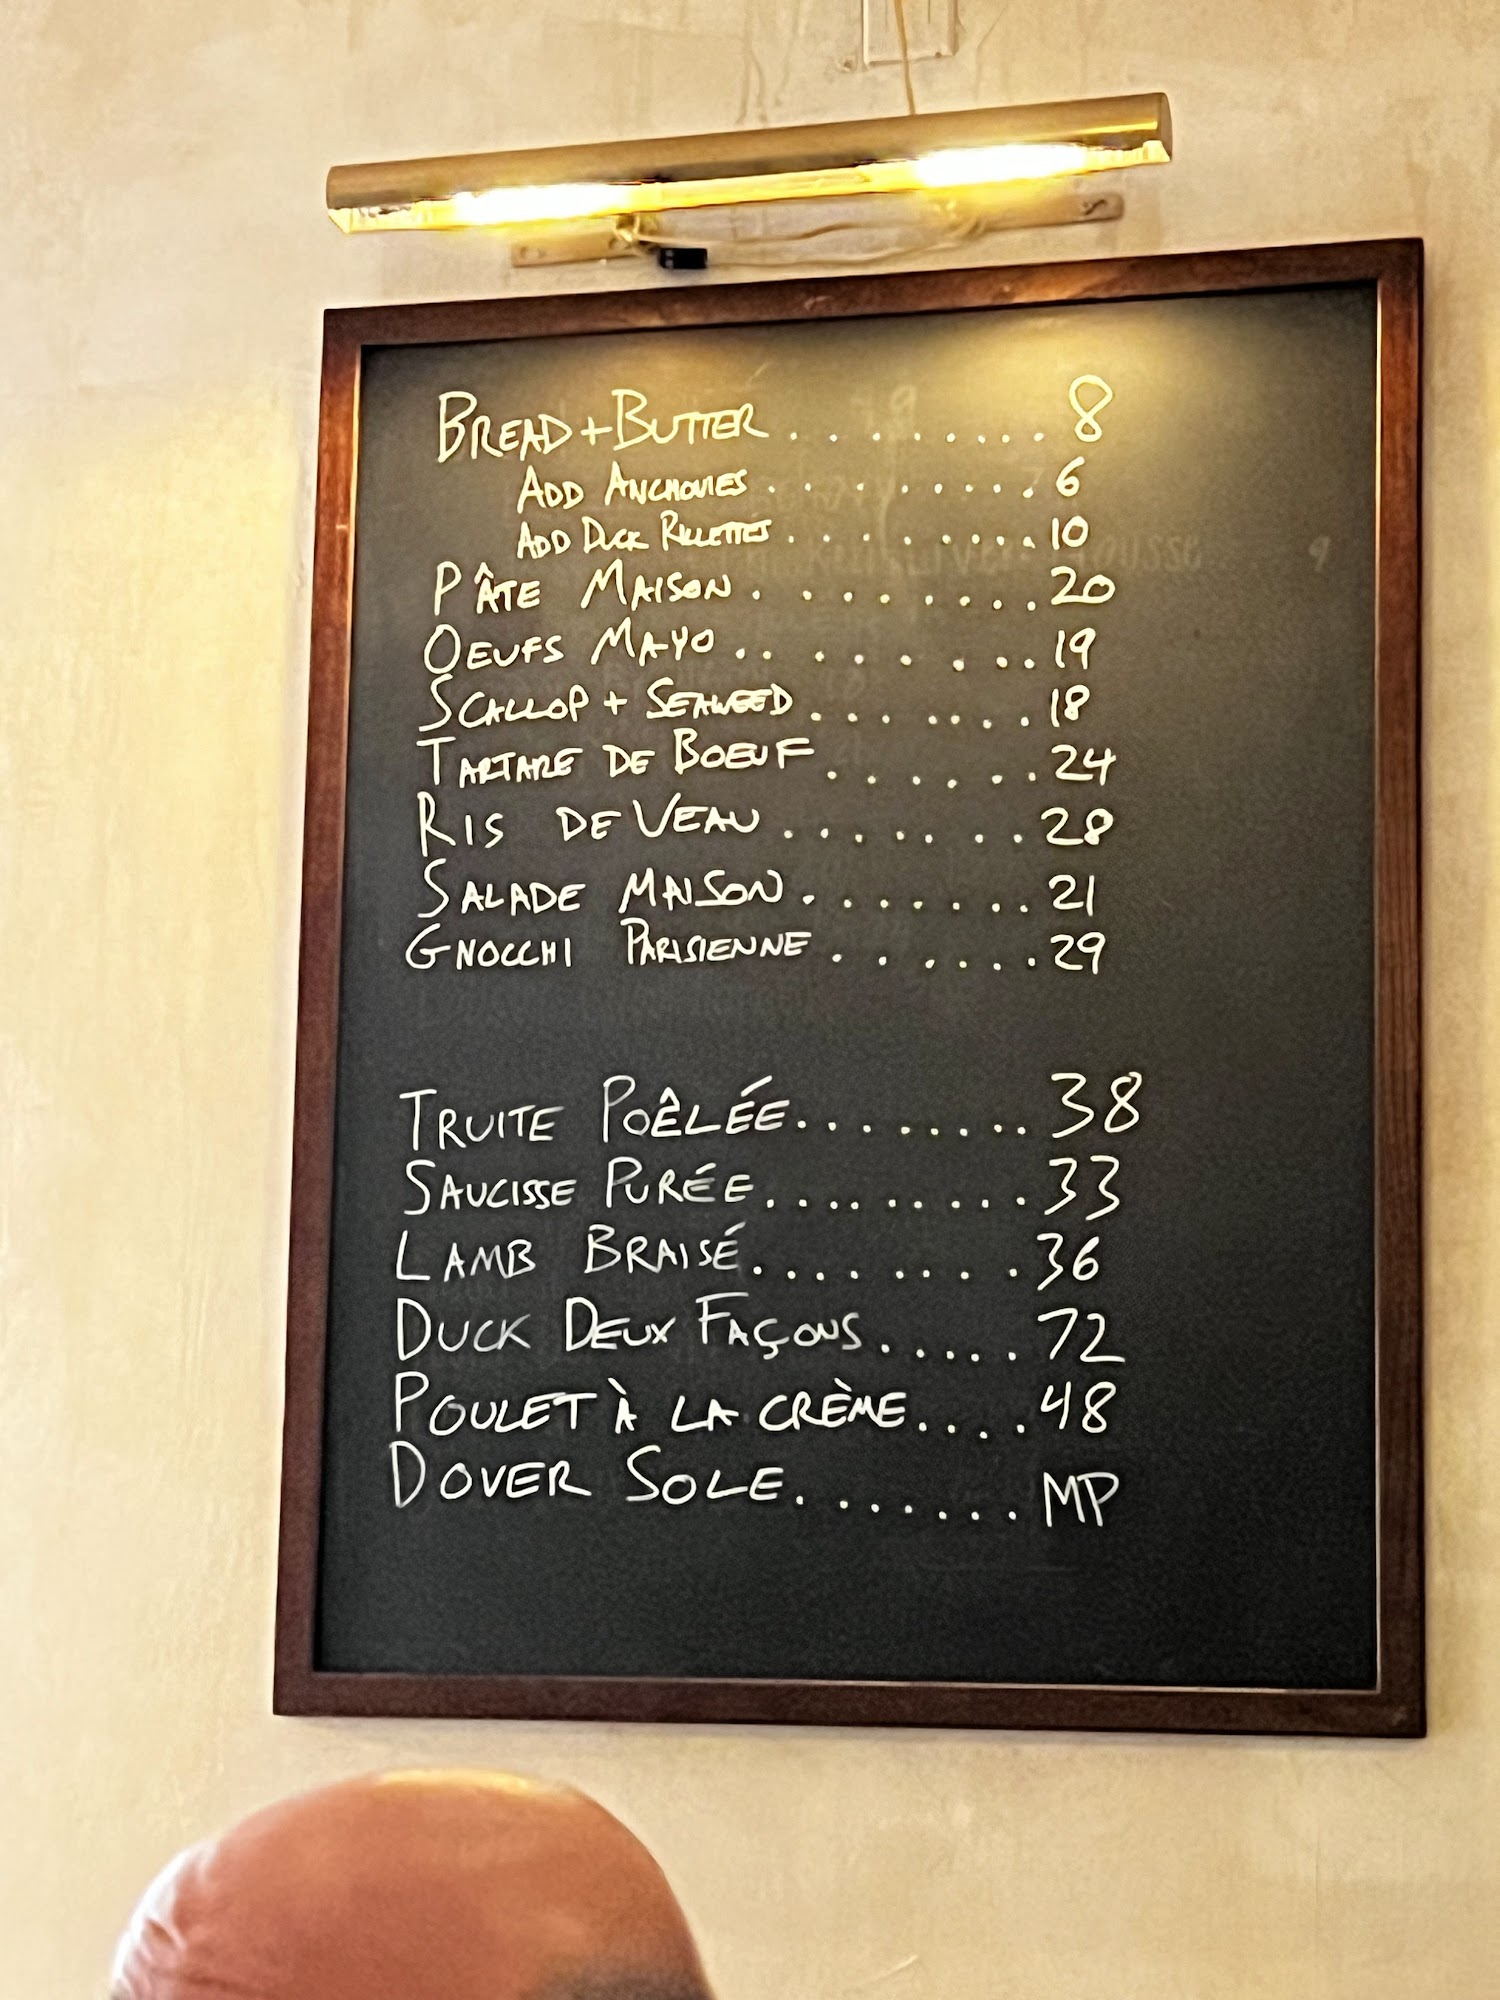 BREAD + BUTTER . . . . . . . . . 8
ADD ANCHOVIES . . . . . . . . . . 6
ADD DUCK RILLETTES . . . . . . . . . 10
PÂTE MAISON . . . . . . . . . 20
OEUFS MAYO . . . . . . . . 19
SCALLOP + SEAWEED . . . . . . . 18
TARTARE DE BOEUF . . . . . . 24
RIS DE VEAU . . . . . . . 28
SALADE MAISON . . . . . . . . 21
GNOCCHI PARISIENNE . . . . . . 29
TRUITE POÊLÉE . . . . . . . . 38
SAUCISSE PURÉE . . . . . . . . . 33
LAMB BRAISÉ . . . . . . . . 36
DUCK DEUX FAÇONS . . . . . 72
POULET À LA CRÈME . . . . 48
DOVER SOLE . . . . . . . MP